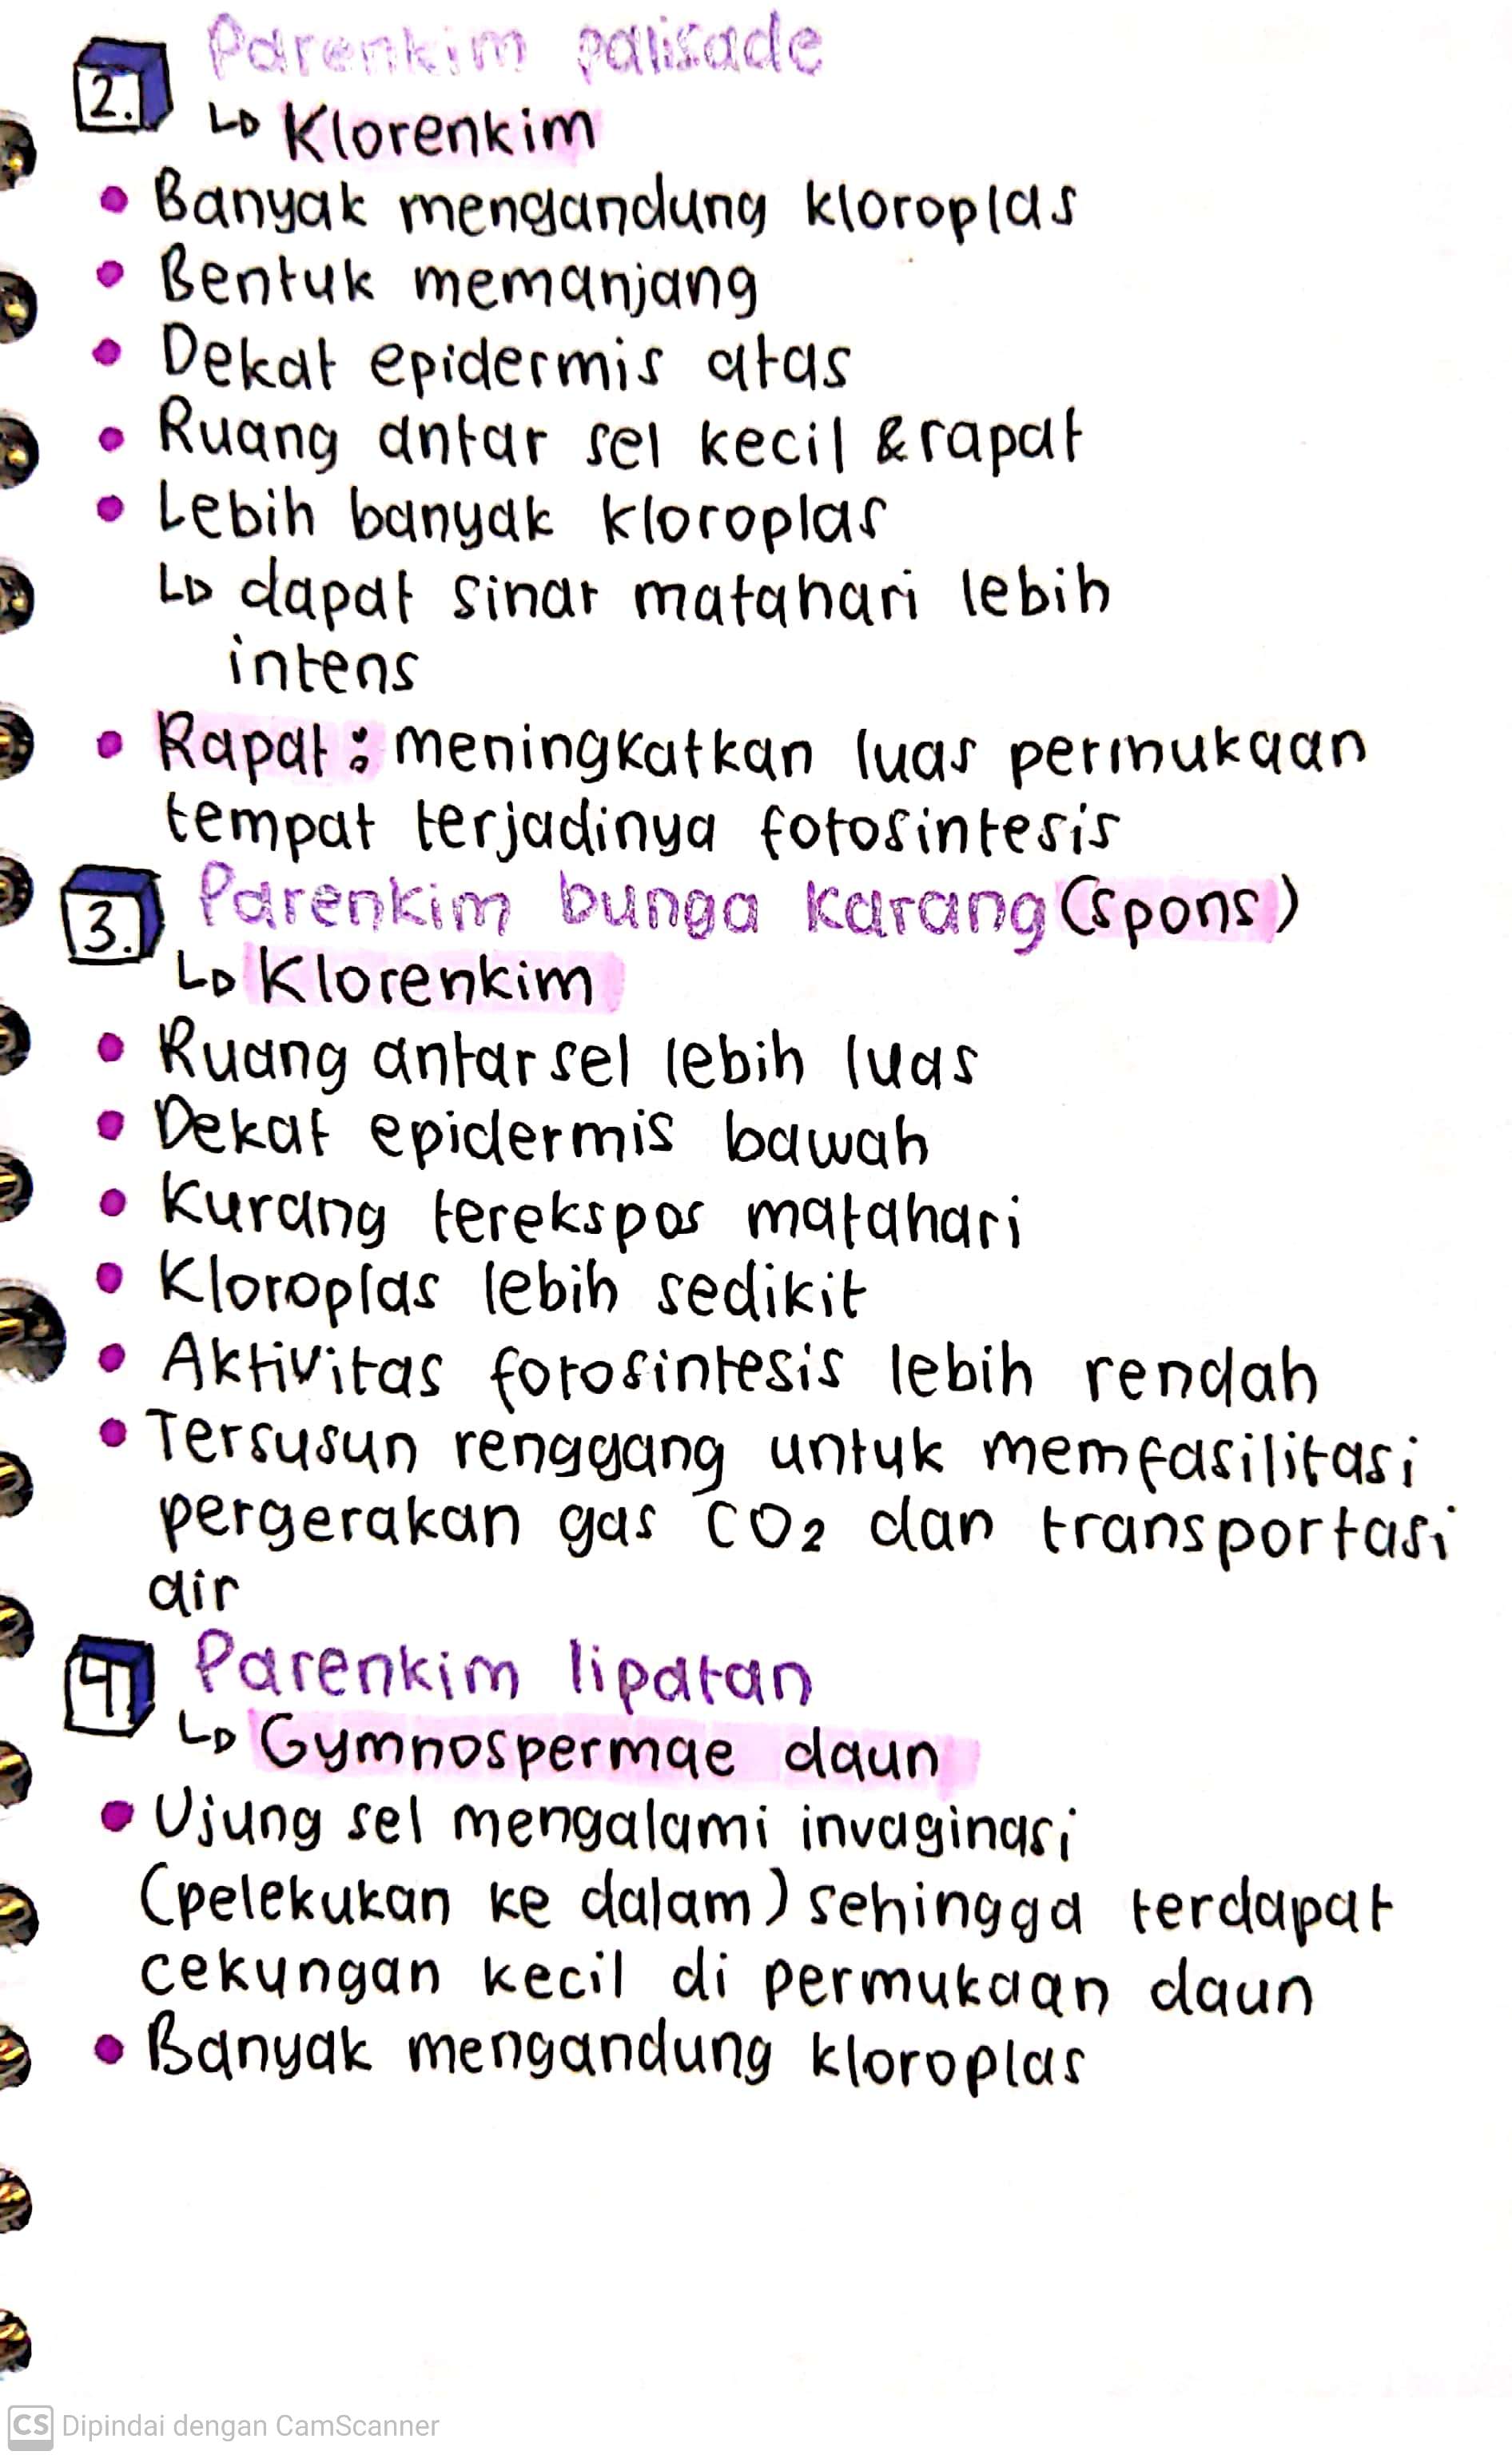 2. Parenkim palisade
↳ Klorenkim
• Banyak mengandung kloroplas
• Bentuk memanjang
• Dekat epidermis atas
• Ruang antar sel kecil & rapat
• Lebih banyak kloroplas
↳ dapat sinar matahari lebih
intens
• Rapat : meningkatkan luas permukaan
tempat terjadinya fotosintesis
3. Parenkim bunga karang (spons)
↳ Klorenkim
• Ruang antar sel lebih luas
• Dekat epidermis bawah
• Kurang terekspos matahari
• Kloroplas lebih sedikit
• Aktivitas fotosintesis lebih rendah
• Tersusun renggang untuk memfasilitasi
pergerakan gas CO₂ dan transportasi
air
4. Parenkim lipatan
↳ Gymnospermae daun
• Ujung sel mengalami invaginasi
(pelekukan ke dalam) sehingga terdapat
cekungan kecil di permukaan daun
• Banyak mengandung kloroplas
CS Dipindai dengan CamScanner